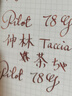 Pilot 78G
神林 Taccia
茶ちゃ
Pilot 78G